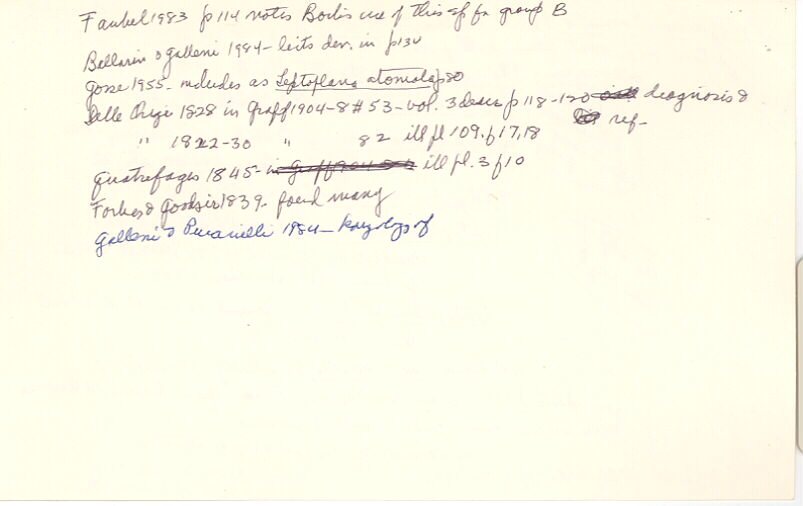 Faubel 1983 p 114 notes Bock's use of this sp for group B
Ballarin & Galleni 1984 - lists dev. in p134
Gosse 1955 - includes as Leptoplana atomata p 80
Delle Chiaje 1828 in Graff 1904-8 # 53 - vol. 3 descr p 118-120 diagnosis &
" 1822-30 " 82 ill pl 109. f 17,18 ref-
Quatrefages 1845 - in Graff 1904 ill pl. 3 f 10
Forbes & Goodsir 1839 - found many
Galleni & Puccinelli 1984 - karyology of